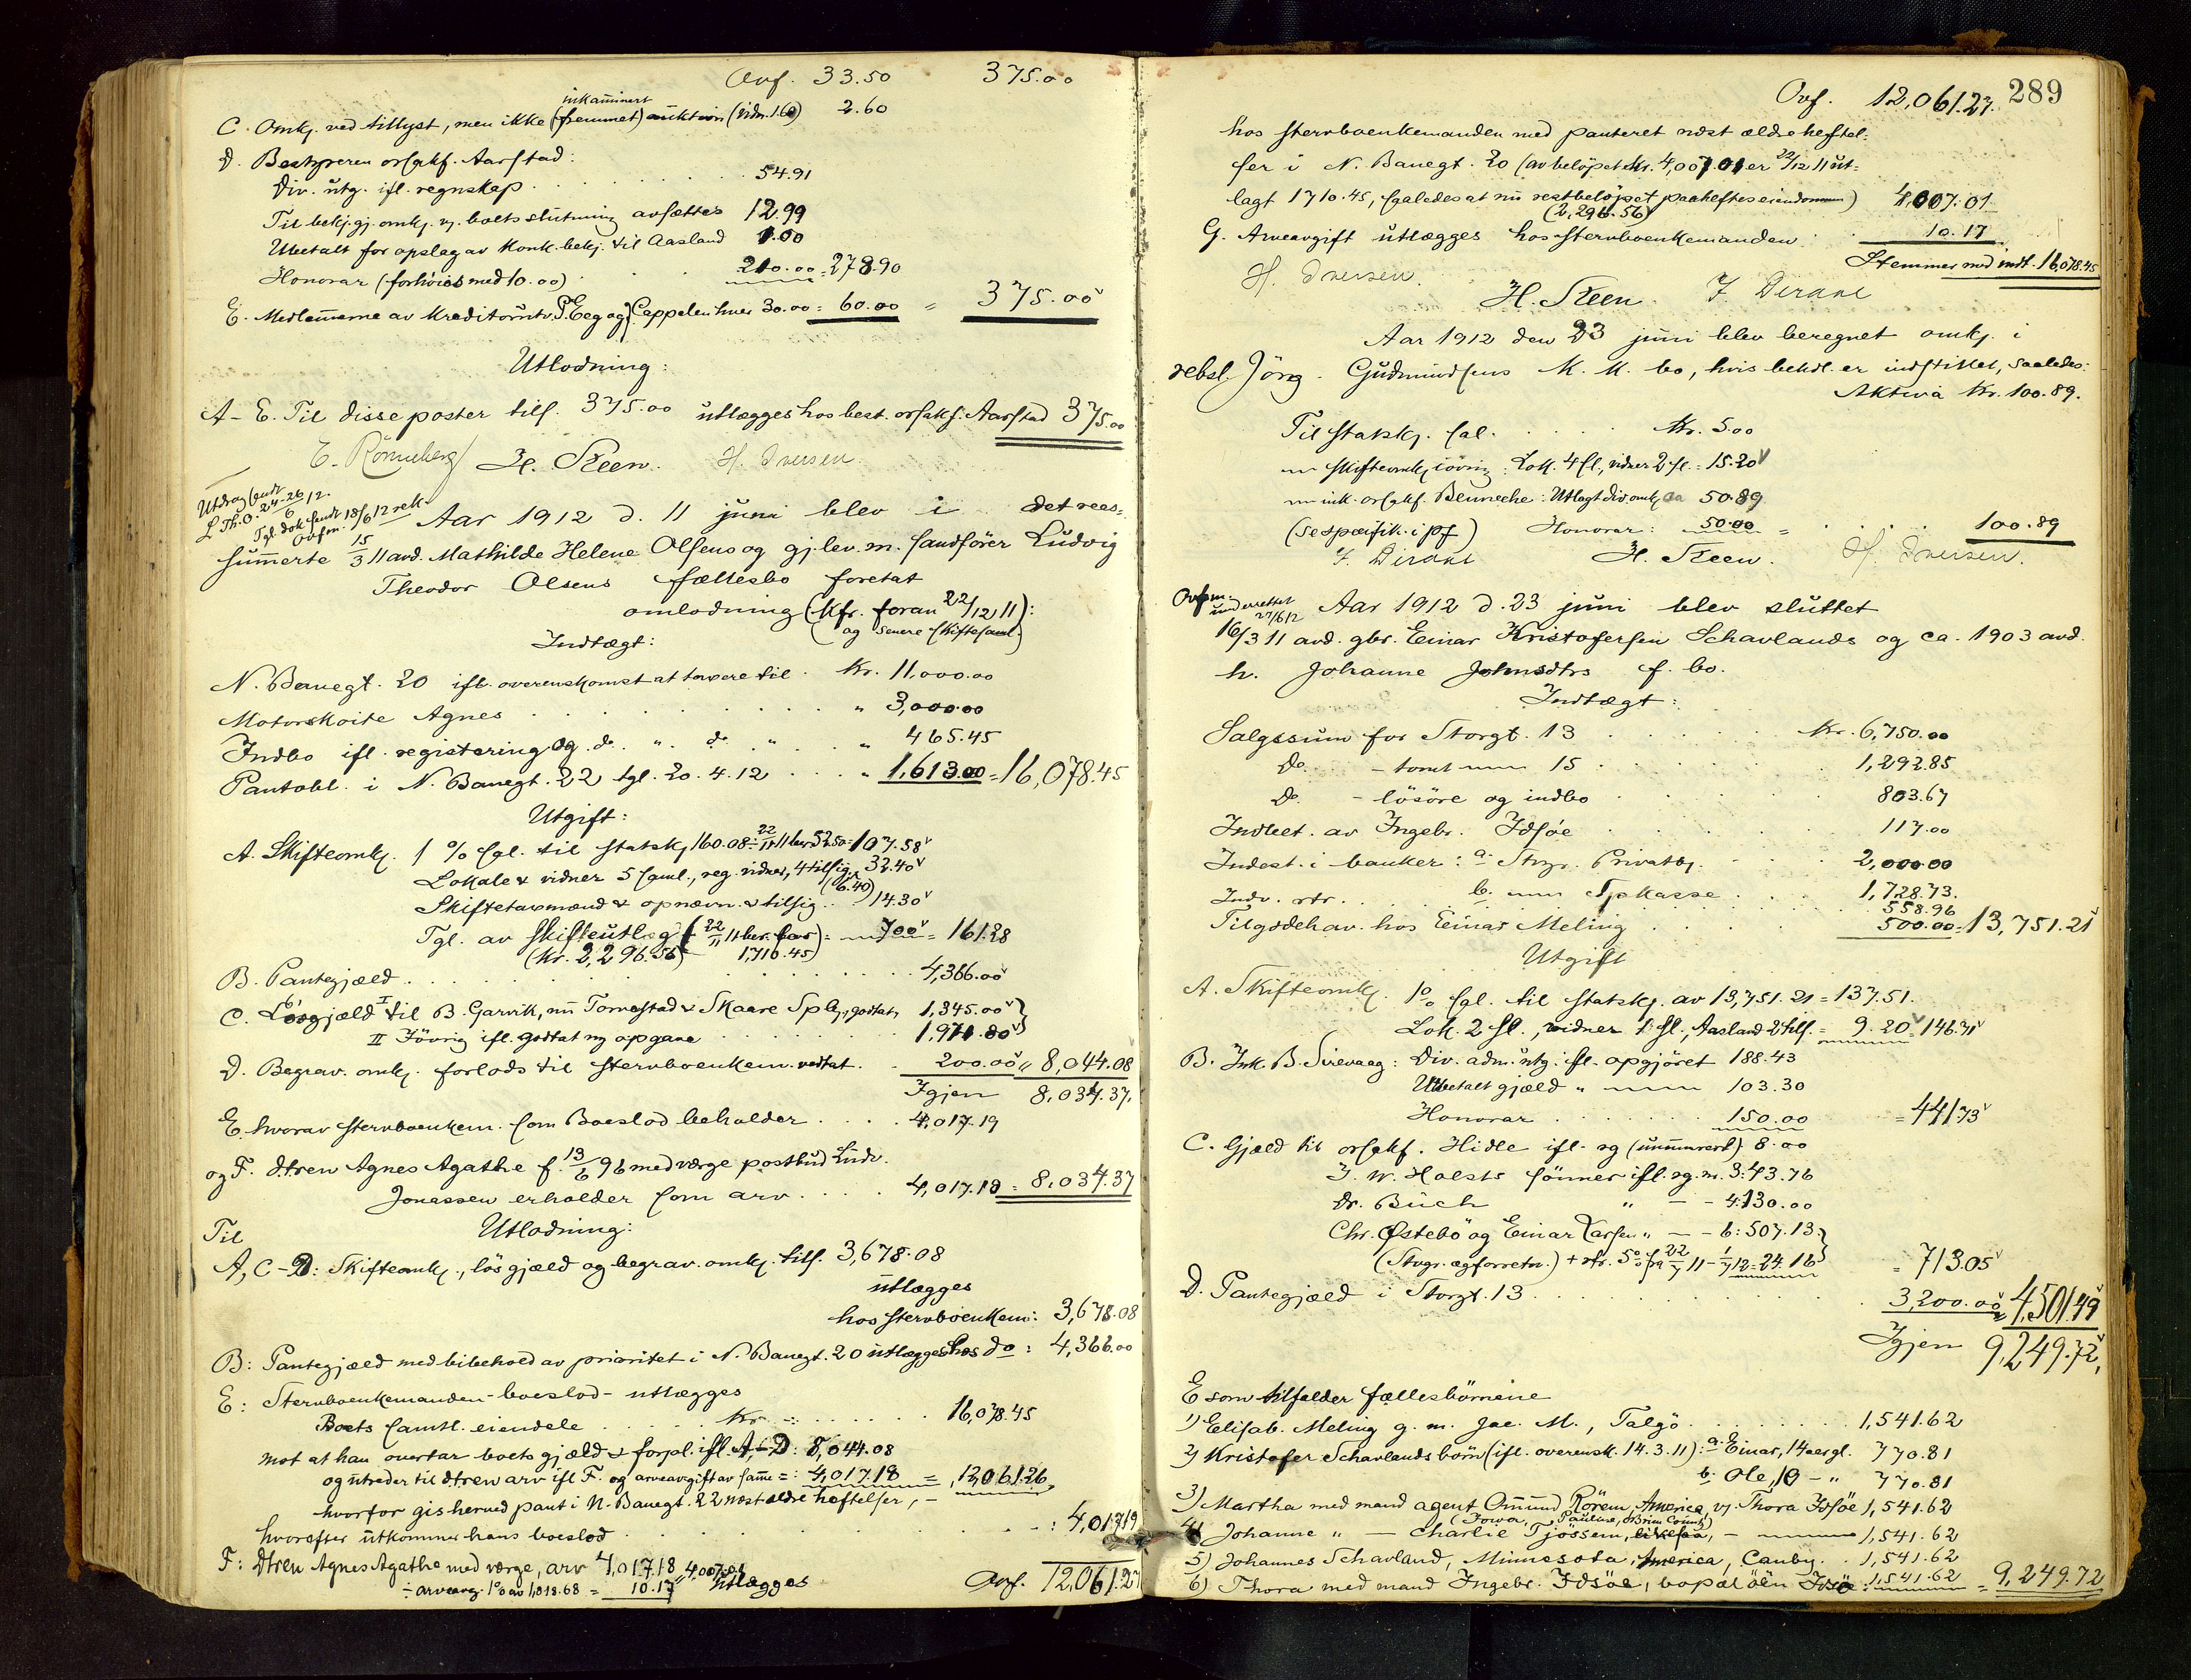 Ovf. 33.50 375.00
inkaminert
C. Omkj. ved tillyst, men ikke (fremmet) auktion (vidn. 1.60) 2.60
D. Bestyreren orsakf. Aarstad:
Div. utg. ifl. regnskap . . . 54.91
Til bekj. gj. omkj. vj. boets slutning avsættes 12.99
Ubetalt for opslag av konk. bekj. til Aasland 1.00
Honorar (forhöies med 10.00) . . . 210.00 = 278.90
E. Medlemmerne av kreditorutv. P. Eeg og J. Cappelen hver 30.00 = 60.00 = 375.00
Utlodning:
A - E. Til disse poster tils. 375.00 utlægges hos best. orsakf. Aarstad 375.00
E. Rönneberg H. Steen. H. Iversen.
Utdrag sendt
L. Th. O. 24-26/6 12.
Tgl. dok. sendt 18/6 12 rek.
Ovfm.
Aar 1912 d. 11 juni blev i det reas=
sumerte 15/3 11 avd. Mathilde Helene Olsens og gj.lev. m. sandförer Ludvig
Theodor Olsens fællesbo foretat
omlodning (Kfr. foran 22/12 11):
(og senere skiftesaml.)
Indtægt:
N. Banegt. 20 ifl. overenskomst at ta over til . Kr. 11,000.00
Motorskoite Agnes . . . " 3,000.00
Indbo ifl. registering og do. " do " . . " 465.45
Pantobl. i N. Banegt. 22 tgl. 20.4.12 . . . " 1,613.00 = 16,078.45
Utgift:
A. Skifteomkj. 1 % sgl. til statskj. 160.08 ÷ 22/11 11 ber. 52.50 = 107.58
Lokale & vidner 5 saml., reg. vidner, 4 tilsig. 32.40
(6.40)
Skiftetaxmænd & opnævn. & tilsig. . 14.30
Tgl. av skifteutlæg (22/11 11 ber. for) = 7.00 = 161.28
(Kr. 2,296.56) 1,710.45)
B. Pantegjæld . . . 4,366.00
C. Lösgjæld I til B. Garvik, nu Tornestad & Skaare Spbk., godtat, 1,345.00
II Iövrig ifl. godtat ny opgave . . . 1,971.80
D. Begrav. omkj. forlods til stervboenkem. vedtat . 200.00 " 8,044.08
Igjen 8,034.37.
E. hvorav stervboenkem. som Boeslod beholder . . . 4,017.19
og F. dtren Agnes Agathe f. 13/6 96 med værge postbud Ludv.
Jonassen erholder som arv . . . 4,017.18 = 8,034.37
Til Utlodning:
A, C - D: Skifteomkj., lösgjæld og begrav. omkj. tils. 3,678.08
utlægges
hos stervboenkem: 3,678.08
B: Pantegjæld med bibehold av prioritet i N. Banegt. 20 utlægges hos do: 4,366.00
E: Stervboenkemanden - boeslod - utlægges
Boets samtl. eiendele . . . Kr. . . . 16,078.45
mot at han overtar boets gjæld & forpl. ifl. A-D: 8,044.08
og utreder til dtren arv ifl. F. og arveavgift av same =: 4,017.18 = 12,061.26,
hvorfor gis herved pant i N. Banegt. 22 næst ældre heftelser, -
hvorefter utkommer hans boeslod . . . : 4,017.19
F: Dtren Agnes Agathe med værge, arv 4,017.18
÷ arveavg. 1% av 1,018.68 = 10.17 = 4,007.01 utlægges
Ovf. 12,061.27
289
Ovf. 12,061.27.
hos stervboenkemanden med panteret næst ældre heftel=
ser i N. Banegt. 20 (av belöpet Kr. 4,007.01 er 22/12 11 ut=
lagt 1710.45, saaledes at nu restbelöpet paaheftes eiendommen) 4,007.01
(2,296.56)
G. Arveavgift utlægges hos stervboenkemanden . . 10.17
Stemmer med indt. 16,078.45
H. Iversen. H. Steen. J. Dirdal
Aar 1912 den 23 juni blev beregnet omkj. i
rebsl. Jörg. Gudmundsens K. K. bo, hvis behdl. er indstillet, saaledes:
Aktiva Kr. 100.89.
Til statskj. sal. . . . Kr. 5.00
" skifteomkj. iövrig: Lok. 4 sl., vidner 2 sl. = 15.20
" ink. orsakf. Benneche: Utlagt div. omkj. ca 50.89
(se specifik. i pf) Honorar: 50.00 = . . . 100.89
J. Dirdal H. Steen. H. Iversen.
Ovfm.
underrettet
27/6 12
Aar 1912 d. 23 juni blev sluttet
16/3 11 avd. gbr. Einar Kristofersen Schavlands og ca. 1903 avd.
h. Johanne Johnsdtrs f. bo.
Indtægt:
Salgssum for Storgt. 13 . . . Kr. 6,750.00
Do. - tomt " 15 . . . 1,292.85
Do. - lösöre og indbo . . . 803.67
Indbet. av Ingebr. Idsöe . . . 117.00
Indest. i banker: a. Stvgr. Privatbk. . . 2,000.00
b. " Spkasse . . . 1,728.73.
Indv. rtr. . . . 558.96
Tilgodehav. hos Einar Meling . . . 500.00 = 13,751.21
Utgift
A. Skifteomkj. 1% sgl. til statskj. av 13,751.21 = 137.51.
Lok. 2 sl., vidner 1 sl., Aasland 2 tils. = 9.20 146.71
B. Ink. B. Sirevaag: Div. adm. utg. ifl. opgjöret 188.43
Ubetalt gjæld " " 103.30
Honorar . . . 150.00 = 441.73
C. Gjæld til orsakf. Hidle ifl. rg (unumrert) 8.00
I. W. Holsts sönner ifl. rg. m. 3: 43.76
Dr. Buch " - - 4: 130.00
Chr. Östebö og Einar Larsen " - - 6: 507.13
(Stvgr. ægforretn.) + rtr. 5% fra 22/7 11 - 1/7 12 = 24.16 = 713.05
D. Pantegjæld i Storgt. 13 . . . 3,200.00 = 4,501.49
Igjen 9,249.72,
E som tilfalder fællesbörnene
1) Elisab. Meling g. m. Jac. M., Talgö . . . 1,541.62
2) Kristofer Schavlands börn (ifl. overensk. 14.3.11): a. Einar, 14 aar gl. 770.81
b. Ole, 10 - " 770.81
3) Martha med mand agent Omund Rörem, America, vj. Thora Idsöe 1,541.62
(Iowa, Paulina, OBrien County)
4) Johanne " - Charlie Tjössem, likesaa, - 1,541.62
5) Johannes Schavland, Minnesota, America, Canby. . 1,541.62
6) Thora med mand Ingebr. Idsöe, bopæl öen Idsö: 1,541.62 = 9,249.72